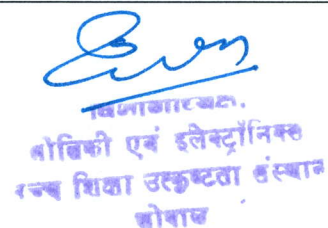 विभागाध्यक्ष.
भौतिकी एवं इलेक्ट्रॉनिक्स
उच्च शिक्षा उत्कृष्टता संस्थान
भोपाल